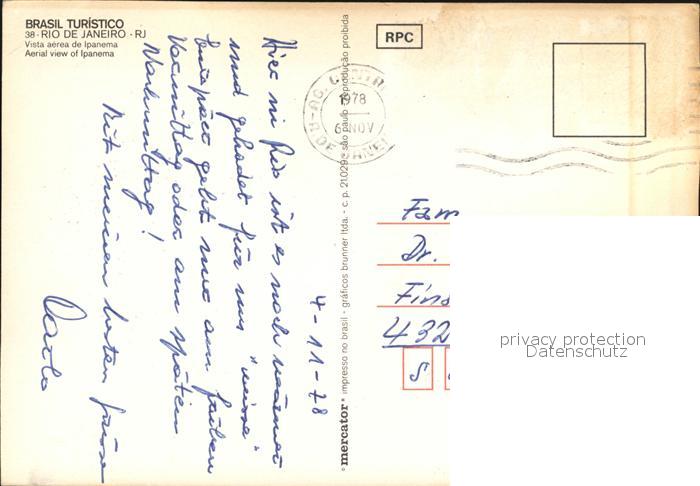 BRASIL TURÍSTICO
38 - RIO DE JANEIRO - RJ
Vista aérea de Ipanema
Aerial view of Ipanema
RPC
1978
6 NOV
DE JANEI
4-11-78
Hier in Rio ist es noch wärmer
und gebadet für uns "
geht nur am frühen
Vormittag oder am späten
Nachmittag!
Mit meinen besten
° mercator ° impresso no brasil - gráficos brunner ltda. - c. p. 21.029 são paulo reprodução proibida
Fam
Dr.
432
S
privacy protection
Datenschutz